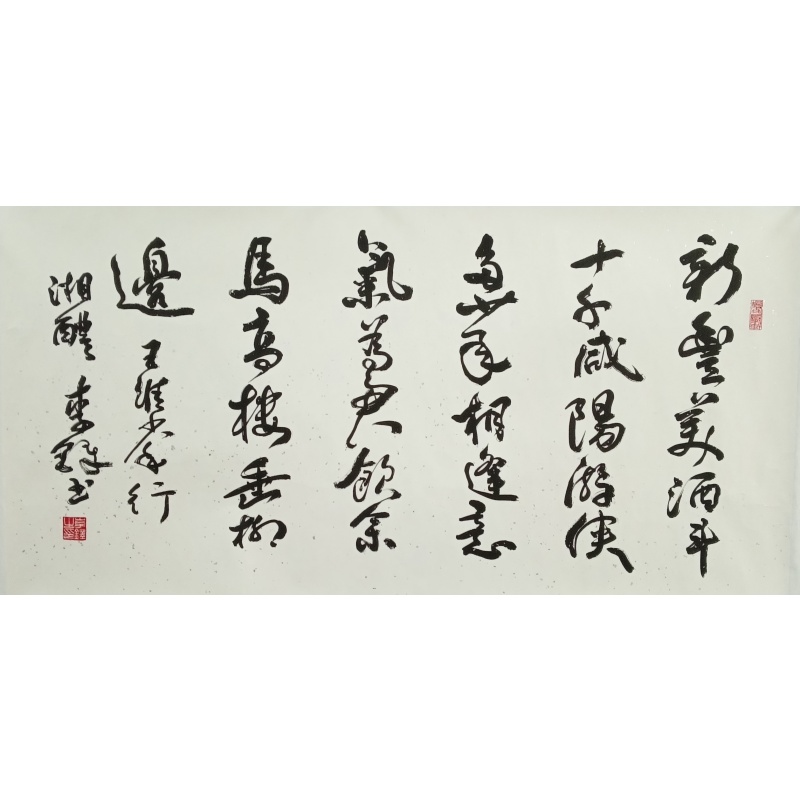 新豐美酒斗
十千咸陽游俠
多少年相逢意
氣為君飲系
馬高樓垂柳
邊 王維少年行
湘醴 李鐸书